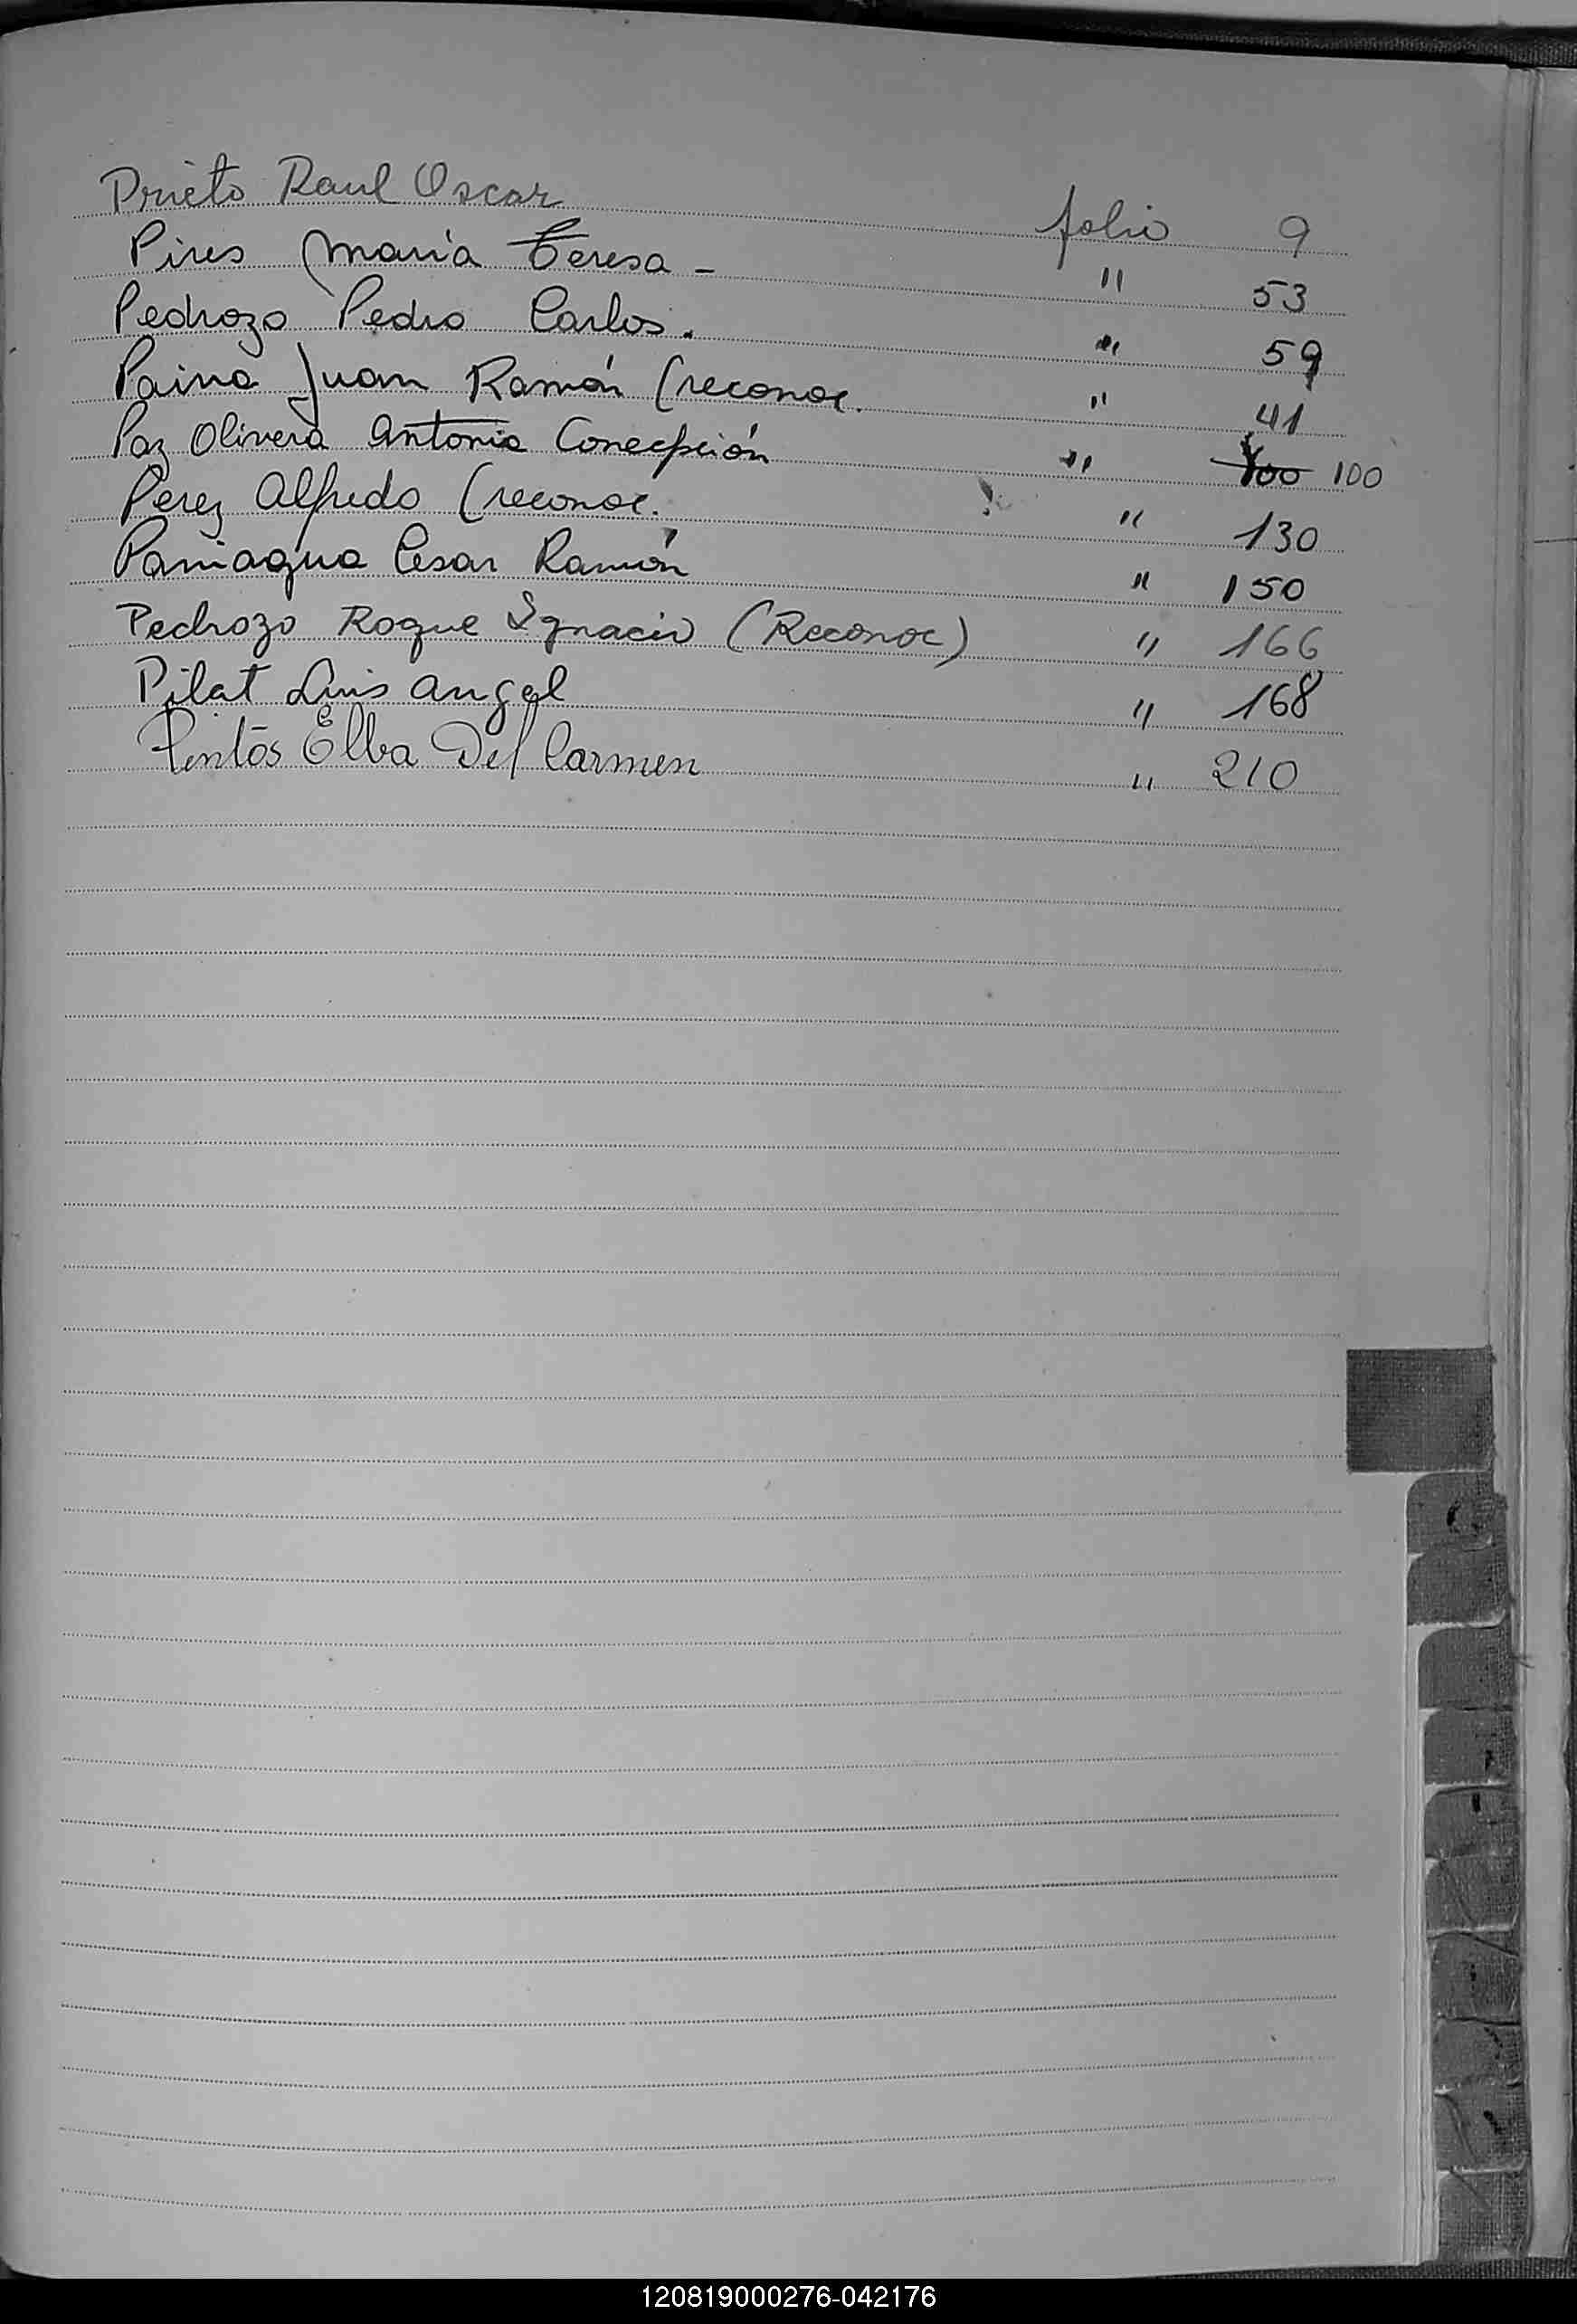 Prieto Raul Oscar folio 9
Pires María Teresa - " 53
Pedrozo Pedro Carlos. " 59
Paiva Juan Ramón (reconoc. " 41
Paz Olivera Antonia Concepción " 100 100
Perez Alfredo (reconoc. " 130
Paniagua Cesar Ramón " 150
Pedrozo Roque Ignacio (Reconoc) " 166
Pilat Luis angel " 168
Pintos Elba Del Carmen " 210
120819000276-042176